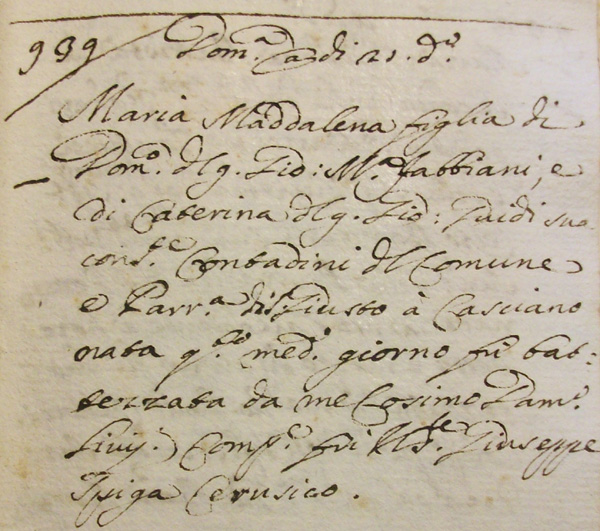 939 Dom.ca a di 21. d.o
Maria Maddalena figlia di
Dom.o dl q. Gio: M.a Fabbiani, e
di Caterina dl q. Gio: Guidi sua
cons.te Contadini dl Comune
e Parr.a di S. Giusto à Casciano
nata q.sto med.o giorno fù bat:
tezzata da me Cosimo Dam.o
Livij. Comp.e fù Giuseppe
Spiga Cerusico.